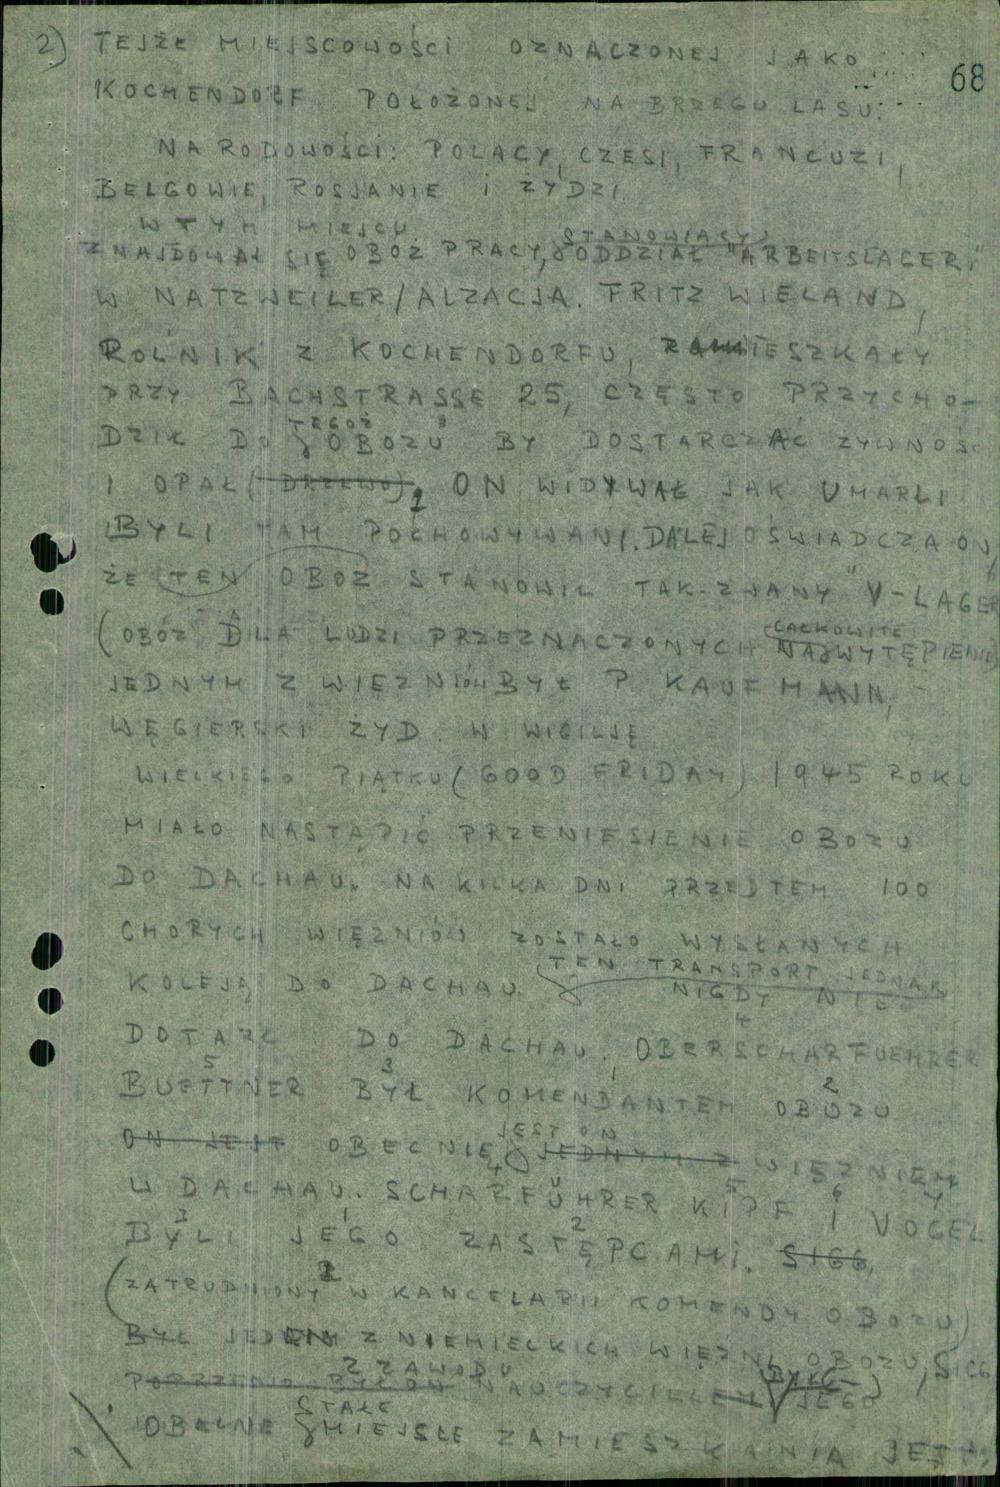 2) TEJŻE MIEJSCOWOŚCI OZNACZONEJ JAKO
68
KOCHENDORF POŁOŻONEJ NA BRZEGU LASU.
NARODOWOŚCI: POLACY, CZESI, FRANCUZI,
BELGOWIE, ROSJANIE I ŻYDZI
W TYM MIEJSCU
STANOWIĄCY
ZNAJDOWAŁ SIĘ OBÓZ PRACY, ODDZIAŁ "ARBEITSLAGER"
W NATZWEILER/ALZACJA. FRITZ WIELAND,
ROLNIK Z KOCHENDORFU, ZAMIESZKAŁY
PRZY BACHSTRASSE 25, CZĘSTO PRZYCHO-
TEGOŻ
DZIŁ DO OBOZU BY DOSTARCZAĆ ŻYWNOŚĆ
I OPAŁ (DRZEWO). ON WIDYWAŁ JAK UMARLI
BYLI TAM POCHOWYWANI. DALEJ OŚWIADCZA ON,
ŻE TEN OBÓZ STANOWIŁ TAK ZWANY "V-LAGER"
CAŁKOWITE
(OBÓZ DLA LUDZI PRZEZNACZONYCH NA WYTĘPIENIE)
JEDNYM Z WIĘŹNIÓW BYŁ P. KAUFMANN,
WĘGIERSKI ŻYD. W WIGILJĘ
WIELKIEGO PIĄTKU (GOOD FRIDAY) 1945 ROKU
MIAŁO NASTĄPIĆ PRZENIESIENIE OBOZU
DO DACHAU. NA KILKA DNI PRZEDTEM 100
CHORYCH WIĘŹNIÓW ZOSTAŁO WYSŁANYCH
TEN TRANSPORT JEDNAK
KOLEJĄ DO DACHAU. NIGDY NIE
DOTARŁ DO DACHAU. OBERSCHARFUEHRER
5 3 1 4 2
BUETTNER BYŁ KOMENDANTEM OBOZU
JEST ON
ON JEST OBECNIE JEDNYM Z WIĘŹNIEM
4 5 6 7
W DACHAU. SCHARFÜHRER KIPF I VOGEL
3 1 2
BYLI JEGO ZASTĘPCAMI. SIGG,
(ZATRUDNIONY W KANCELARII KOMENDY OBOZU)
BYŁ JEDEN Z NIEMIECKICH WIĘŹNI OBOZU, SIGG
Z ZAWODU BYŁ
BYŁ ON NAUCZYCIELEM JEGO
STAŁE
OBECNE MIEJSCE ZAMIESZKANIA JEST